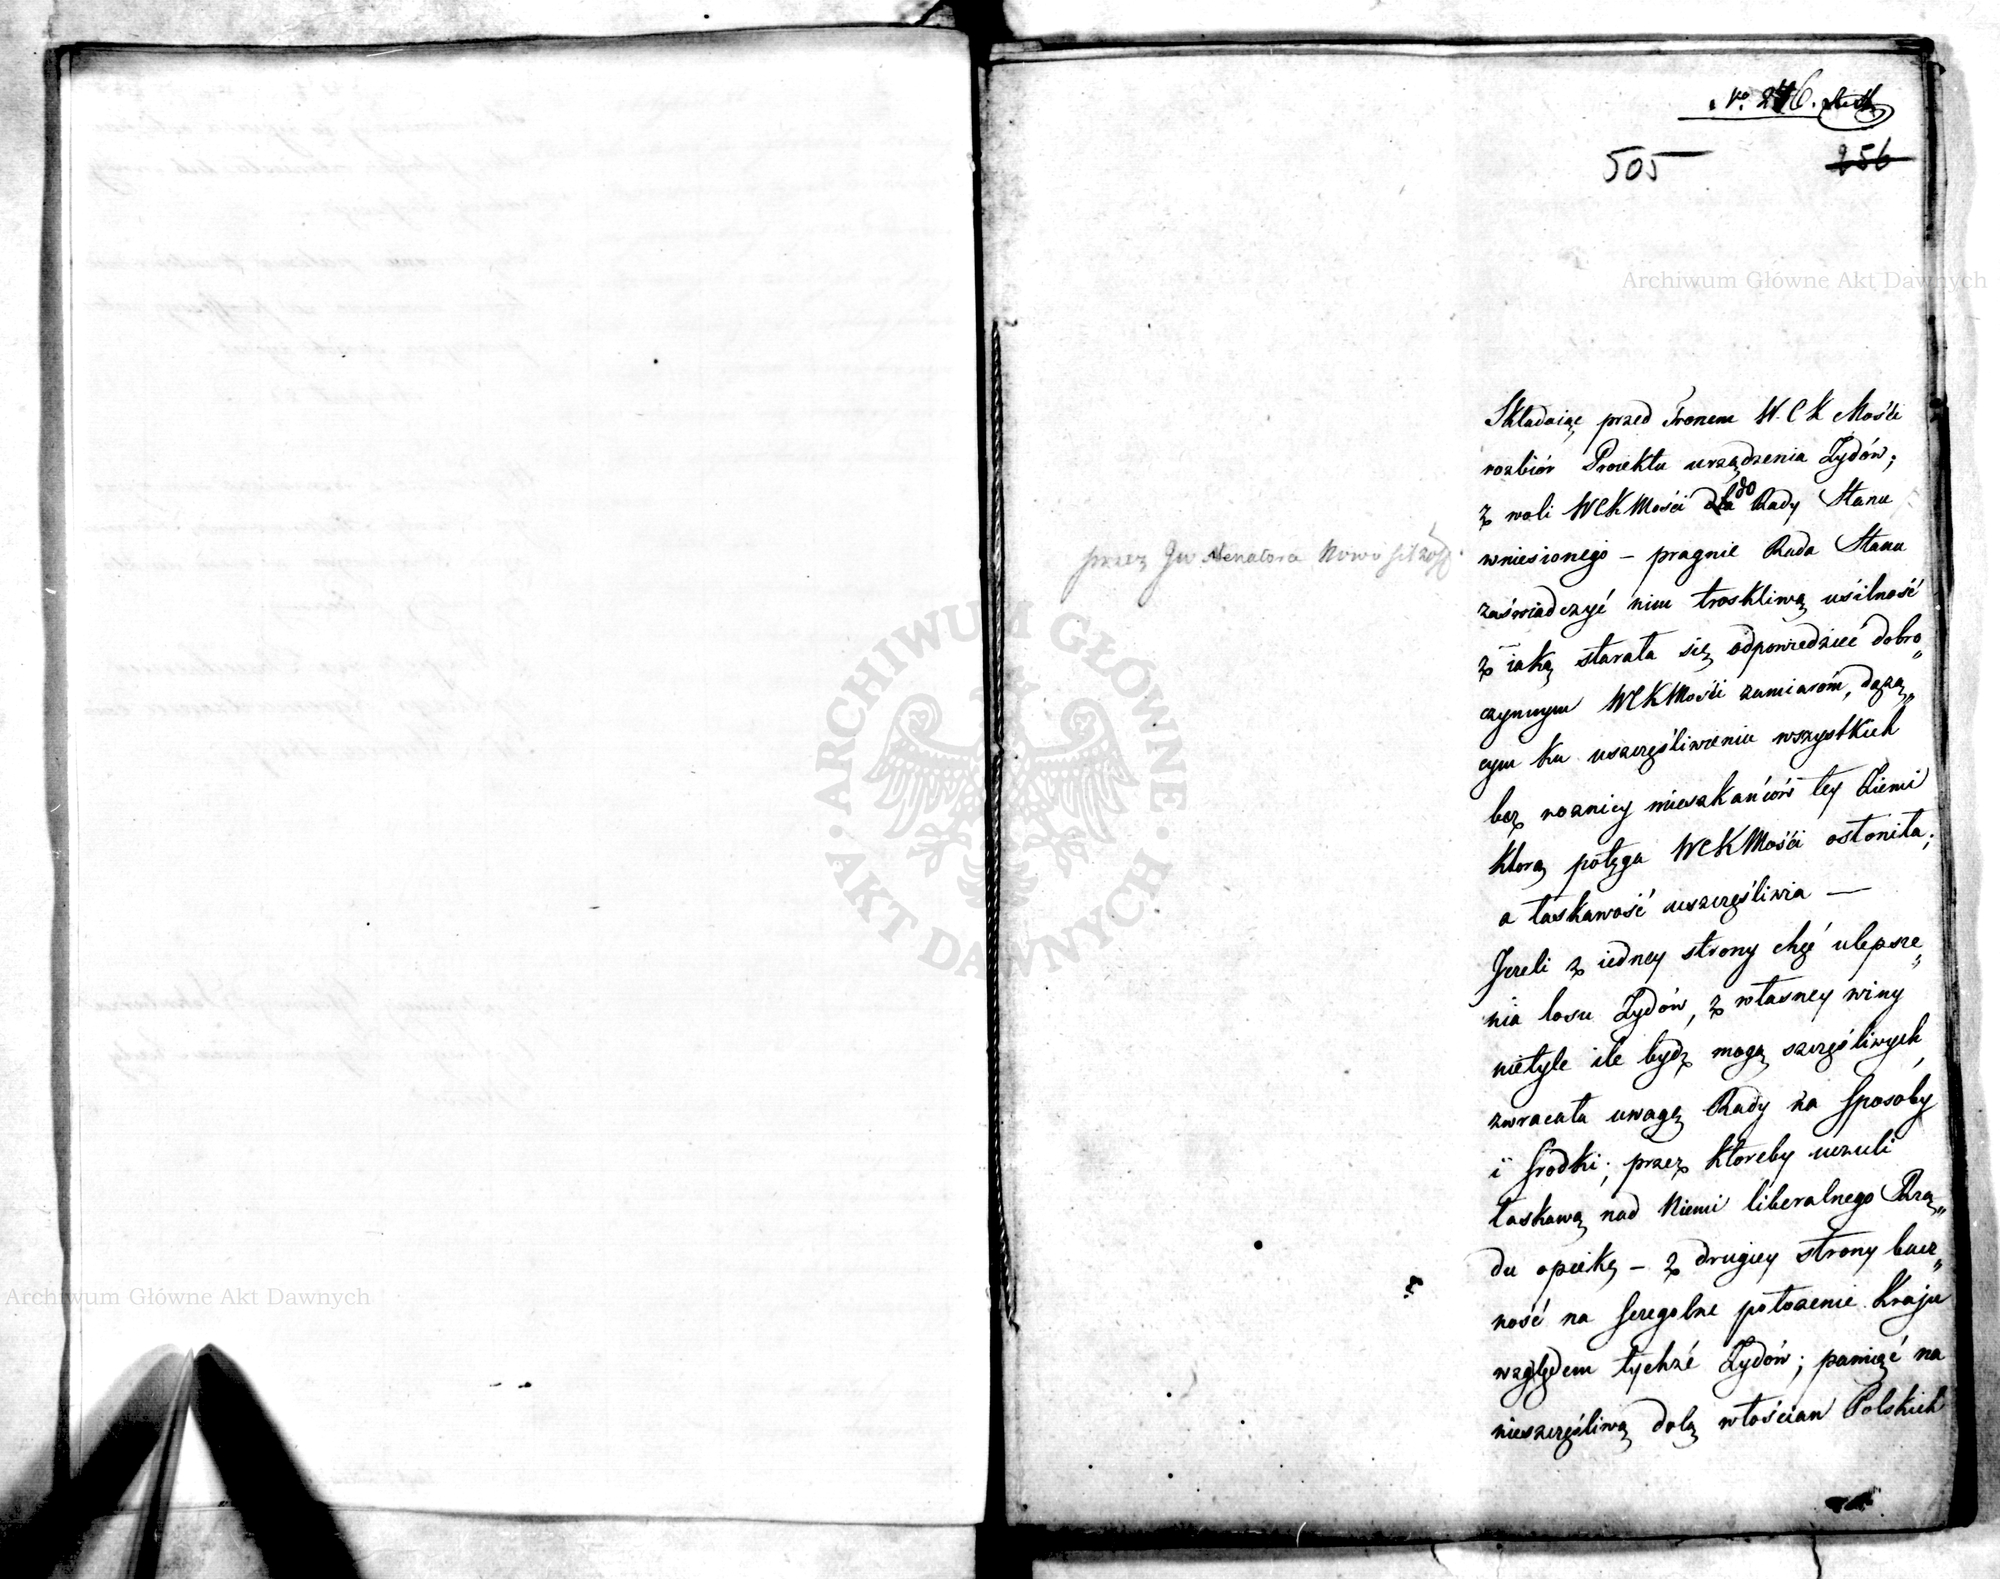 No. 246.
505 256
Archiwum Główne Akt Dawnych
Składaiąc przed Tronem W. C K Mości
rozbiór Proiektu urządzenia Żydów;
z woli WCKMości do Rady Stanu
przez JW Senatora Nowosilzoff.
wniesionego – pragnie Rada Stanu
zaświadczyć nim troskliwą usilność
z iaką starała się odpowiedzieć dobro„
czynnym WCKMości zamiaróm, dążą„
cym ku uszczęśliwieniu wszystkich
bez roznicy mieszkańców tey Ziemi
ktorą potęga WCKMości osłoniła;
a łaskawość uszczęśliwia —
Jezeli z iedney strony chęć ulepsze„
nia losu Żydów, z własney winy
nietyle ile bydz mogą szczęśliwych
zwracała uwagę Rady na sposoby
i srodki; przez ktoreby uczuli
łaskawą nad niemi liberalnego Rzą„
du opiekę – z drugiey strony bacz„
ność na szczegolne położenie Kraju
względem tychże Żydów; pamięć na
nieszczęśliwą dolą włościan Polskich
ARCHIWUM GŁÓWNE
AKT DAWNYCH
Archiwum Główne Akt Dawnych